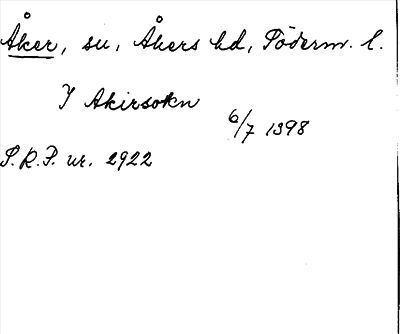 Åker, sn, Åkers hd, Söderm. l.
I Akirsokn
6/7 1398
S.R.P. nr. 2922